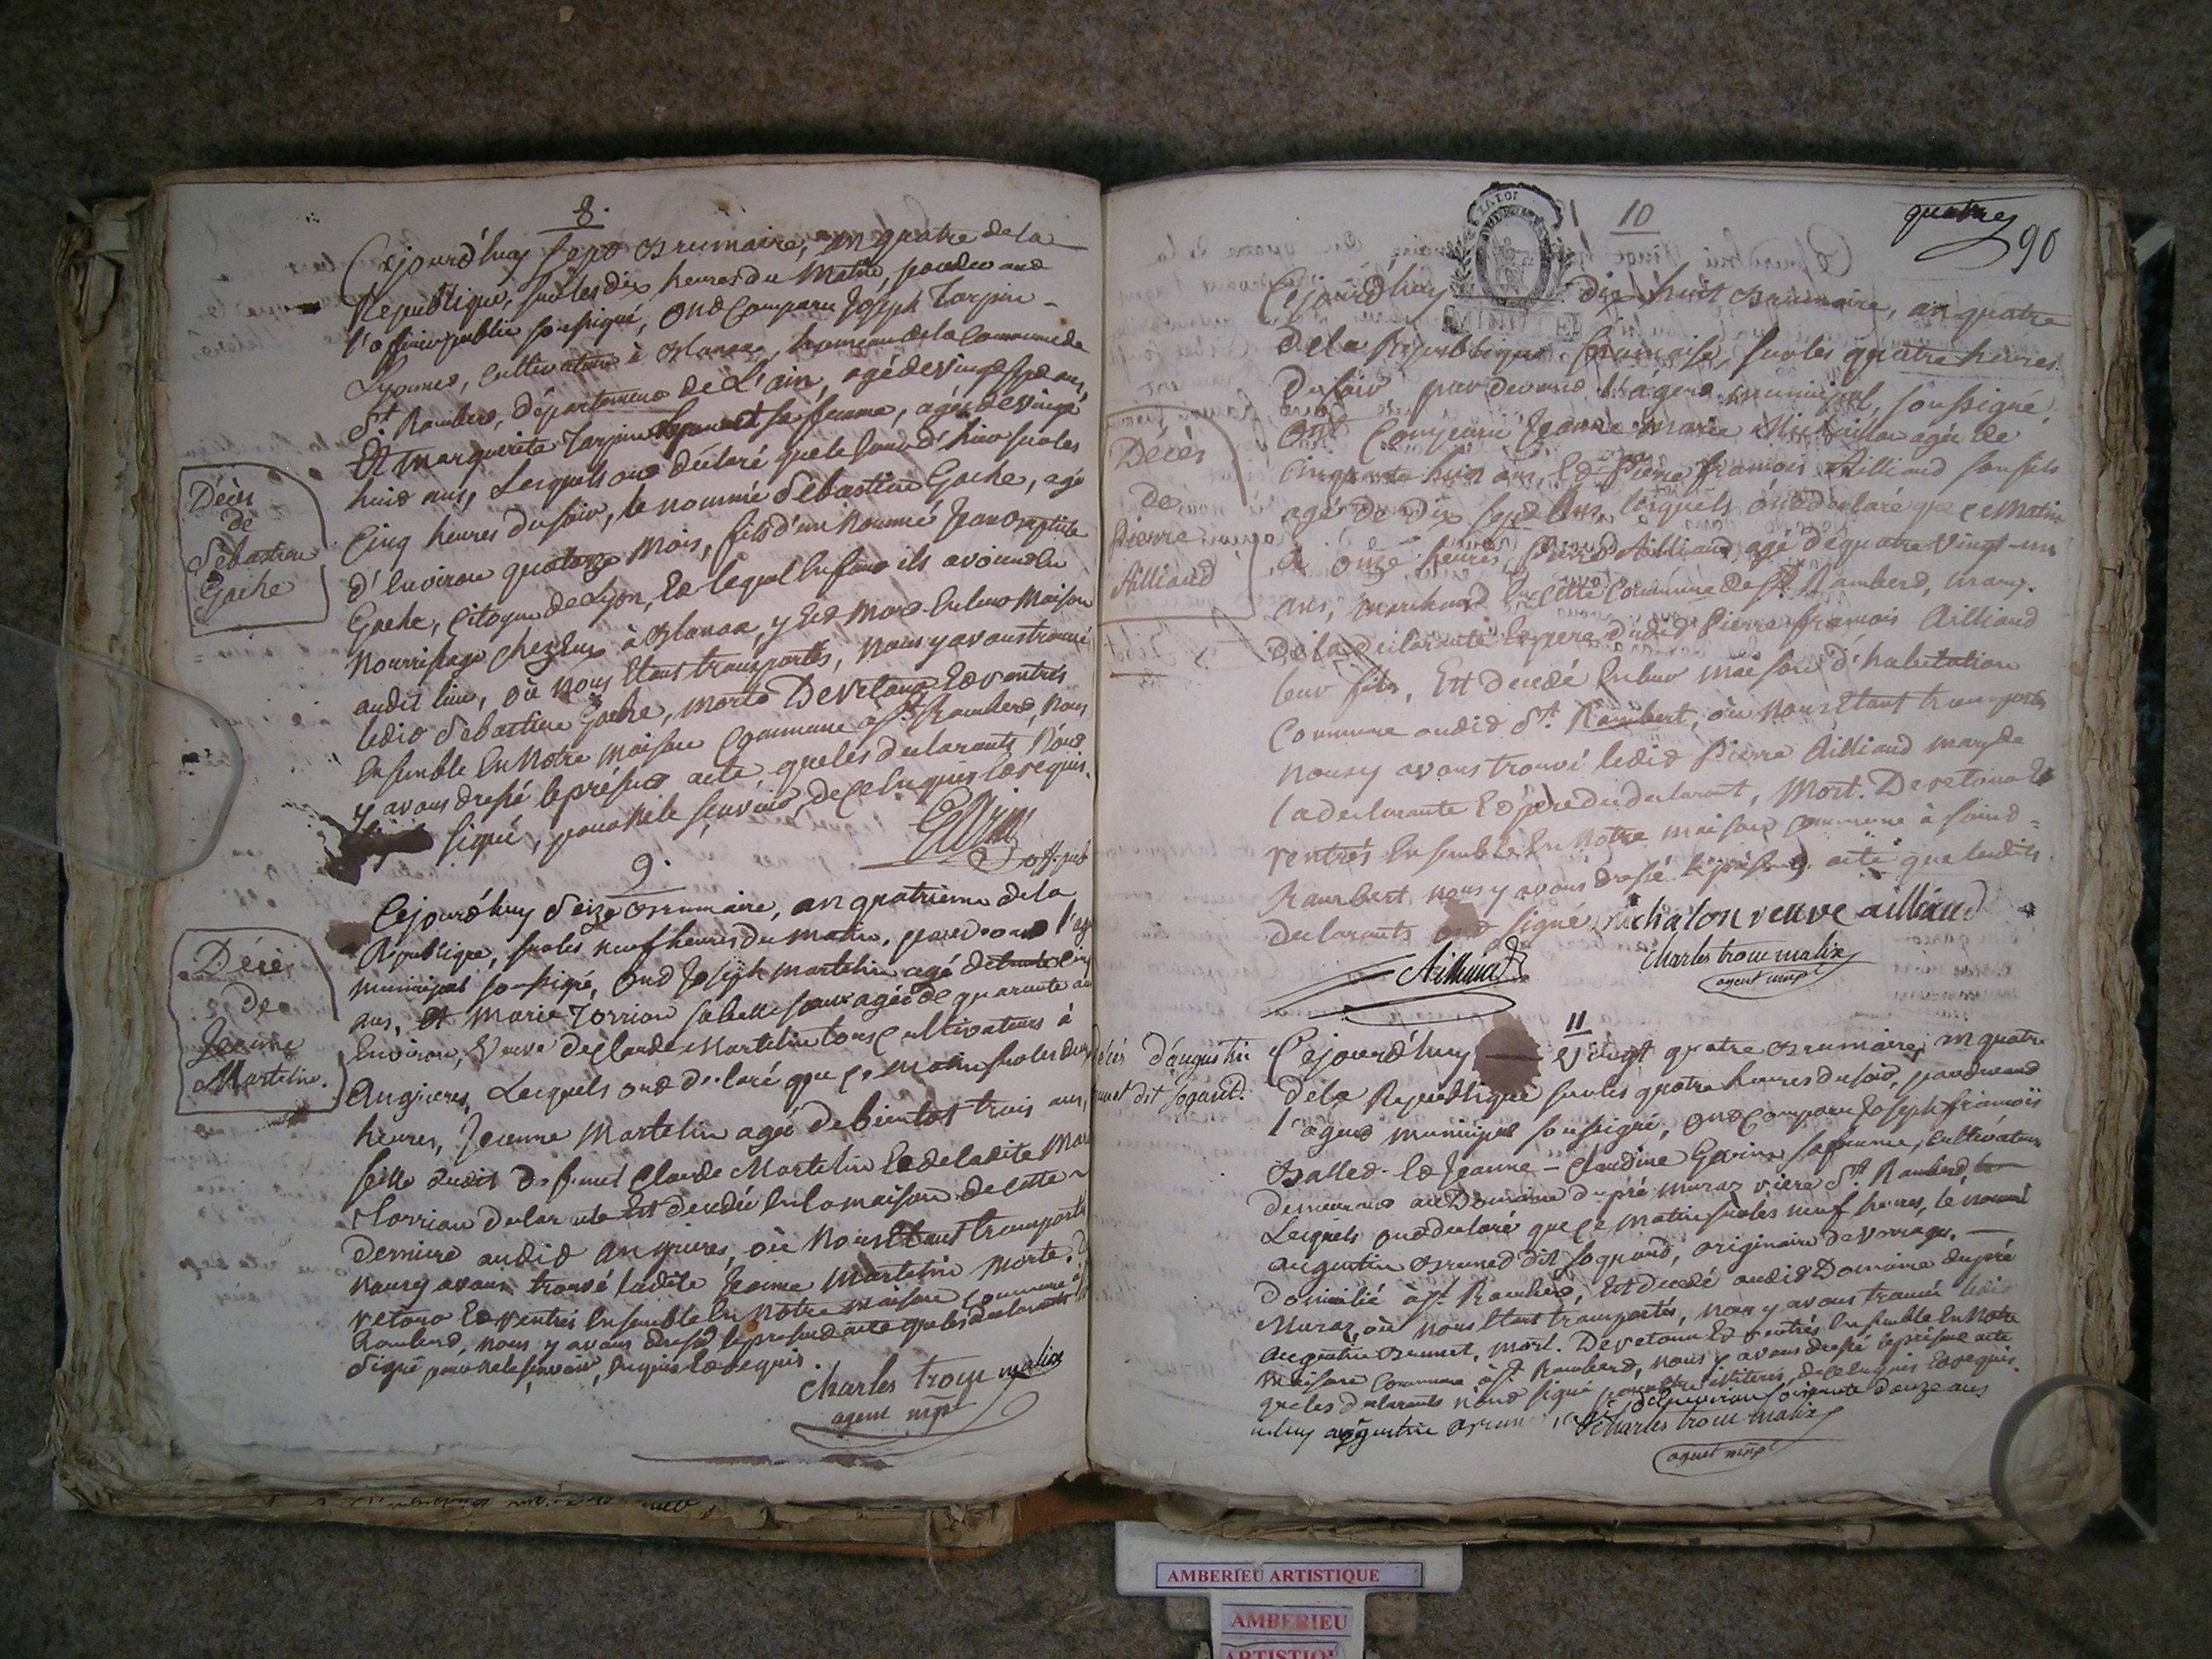 8.
Cejourd'huy sept Brumaire, an quatre de la
Republique, sur les dix heures du matin, pardevant
l'officier public soussigné, ont comparu Joseph Tarpin
cultivateur à Blanaz, hameau de la Commune de
St Rambert, département de L'ain, agé de vingt sept ans,
Et marguerite Tarpin sa femme, agée de vingt
huit ans, Lesquels ont déclaré que le jour d'hier sur les
Cinq heures du soir, le nommé Sebastien Gache, agé
d'Environ quatorze mois, fils d'un nommé Jean Baptiste
Gache, Citoyen de Lyon, Et lequel Enfant ils avoient En
Nourrissage chez Eux à Blanaz, y Est mort En leur Maison
audit lieu, où nous Etant transportés, nous y avons trouvé
ledit Sebastien Gache, mort. De retour Et rentrés
Ensemble En Notre maison Commune à St Rambert, nous
y avons dressé le présent acte que les declarants n'ont
signé, pour ne le savoir de ce Enquis Et requis.
off. pub
Décès
de
Sébastien
Gache
9.
Cejourd'huy Seize Brumaire, an quatrieme de la
Republique, sur les neuf heures du matin, pardevant l'agt
municipal soussigné, Ont Joseph martelin agé de trente cinq
ans, Et Marie Torrion sa belle soeur agée de quarante ans
Environ, Veuve de Claude Martelin tous cultivateurs à
Angrieres, Lesquels ont déclaré que ce matin sur les deux
heures, Jeanne Martelin agée de bientot trois ans,
fille dudit defunt Claude Martelin Et de ladite Marie
Torrion declarante Est decedée En la maison de cette
derniere audit angrieres, où nous Etant transportés
nous y avons trouvé ladite Jeanne Martelin morte. De
retour Et rentrés Ensemble En Notre maison commune à St
Rambert, nous y avons dressé le present acte que les declarants
signé pour ne le savoir, Enquis Et requis.
Charles trocu malix
agent mpal
Décès
de
Jeanne
Martelin.
quatre
90
LA LOI
10
Cejourd'huy dix huit Brumaire, an quatre
De la Republique francaise, sur les quatre heures
Du soir par devant L'agent municipal, soussigné,
Ont Comparu Jeanne Marie Michallon agée de
Cinquante huit ans, Et Pierre francois Ailliaud son fils
agé de dix sept ans, lesquels ont declaré que ce matin
à onze heures, Pierre Ailliaud agé de quatre vingt-un
ans, marchand En cette Commune de St Rambert, mary
de la declarante Et pere dudit Pierre francois Ailliaud
leur fils, Est decedé En leur maison d'habitation
Commune audit St Rambert, où nous Etant transportés
nous y avons trouvé ledit Pierre Ailliaud mary de
la declarante Et pere du declarant, Mort. De retour Et
rentrés Ensemble En Notre maison commune à saint
Rambert, nous y avons dressé le présent acte que lesdits
declarants ont signé
michalon veuve ailliaud
Ailliaud
Charles trocu malix
agent mpal
Décès
de
Pierre
Ailliaud
11
Cejourd'huy Vingt quatre Brumaire, an quatre
de la Republique sur les quatre heures du soir, pardevant
l'agent municipal soussigné, ont comparu Joseph francois
Ballet Et Jeanne-Claudine Gerin sa femme, cultivateurs
demeurant au Domaine du pré muraz riere St Rambert
Lesquels ont declaré que ce matin sur les neuf heures, le nommé
augustin Brunet dit Sogand, originaire de
Domicilié à St Rambert, Est decedé audit Domaine du pré
Muraz, où nous Etant transportés, nous y avons trouvé ledit
augustin Brunet, mort. De retour Et rentrés Ensemble En Notre
Maison Commune à St Rambert, nous y avons dressé le présent acte
que les declarants n'ont signé pour Etre illiterés, de ce Enquis Et requis.
augustin Brunet agé d'Environ soixante douze ans
Charles trocu malix
agent mpal
décès d'augustin
Brunet dit Sogand.
AMBERIEU ARTISTIQUE
AMBERIEU
ARTISTIQUE